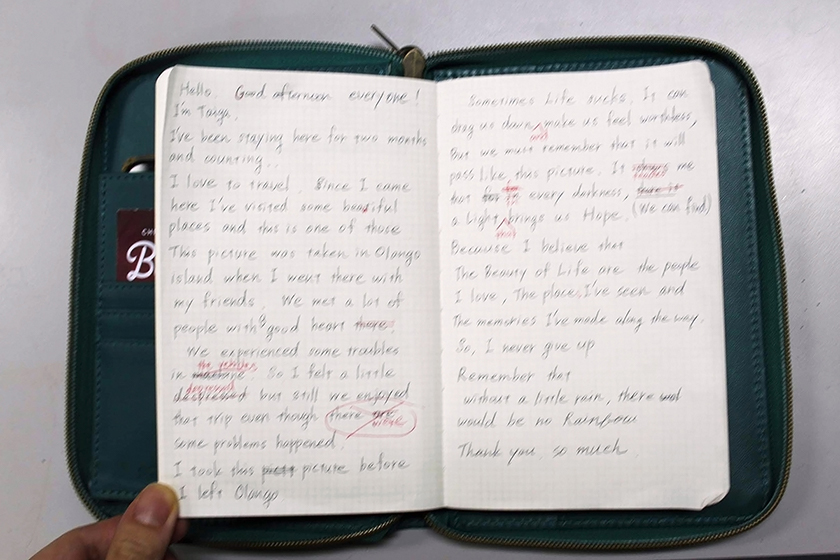 Hello. Good afternoon everyone!
I'm Taiga.
I've been staying here for two months
and counting..
I love to travel. Since I came
here I've visited some beautiful
places and this is one of those
This picture was taken in Olango
island when I went there with
my friends. We met a lot of
people with a good heart there
We experienced some troubles
in machine. So I felt a little
depressed but still we enjoyed
that trip even though there are
were
some problems happened.
I took this picture before
I left Olango
Sometimes Life sucks. It can
drag us down, make us feel worthless,
and
But we must remember that it will
pass like this picture. It me
that for in every darkness, there is
a Light, brings us Hope. (We can find)
that
Because I believe that
The Beauty of Life are the people
I love, The place I've seen and
The memories I've made along the way.
So, I never give up
Remember that
without a little rain, there
would be no Rainbow
Thank you so much.
B